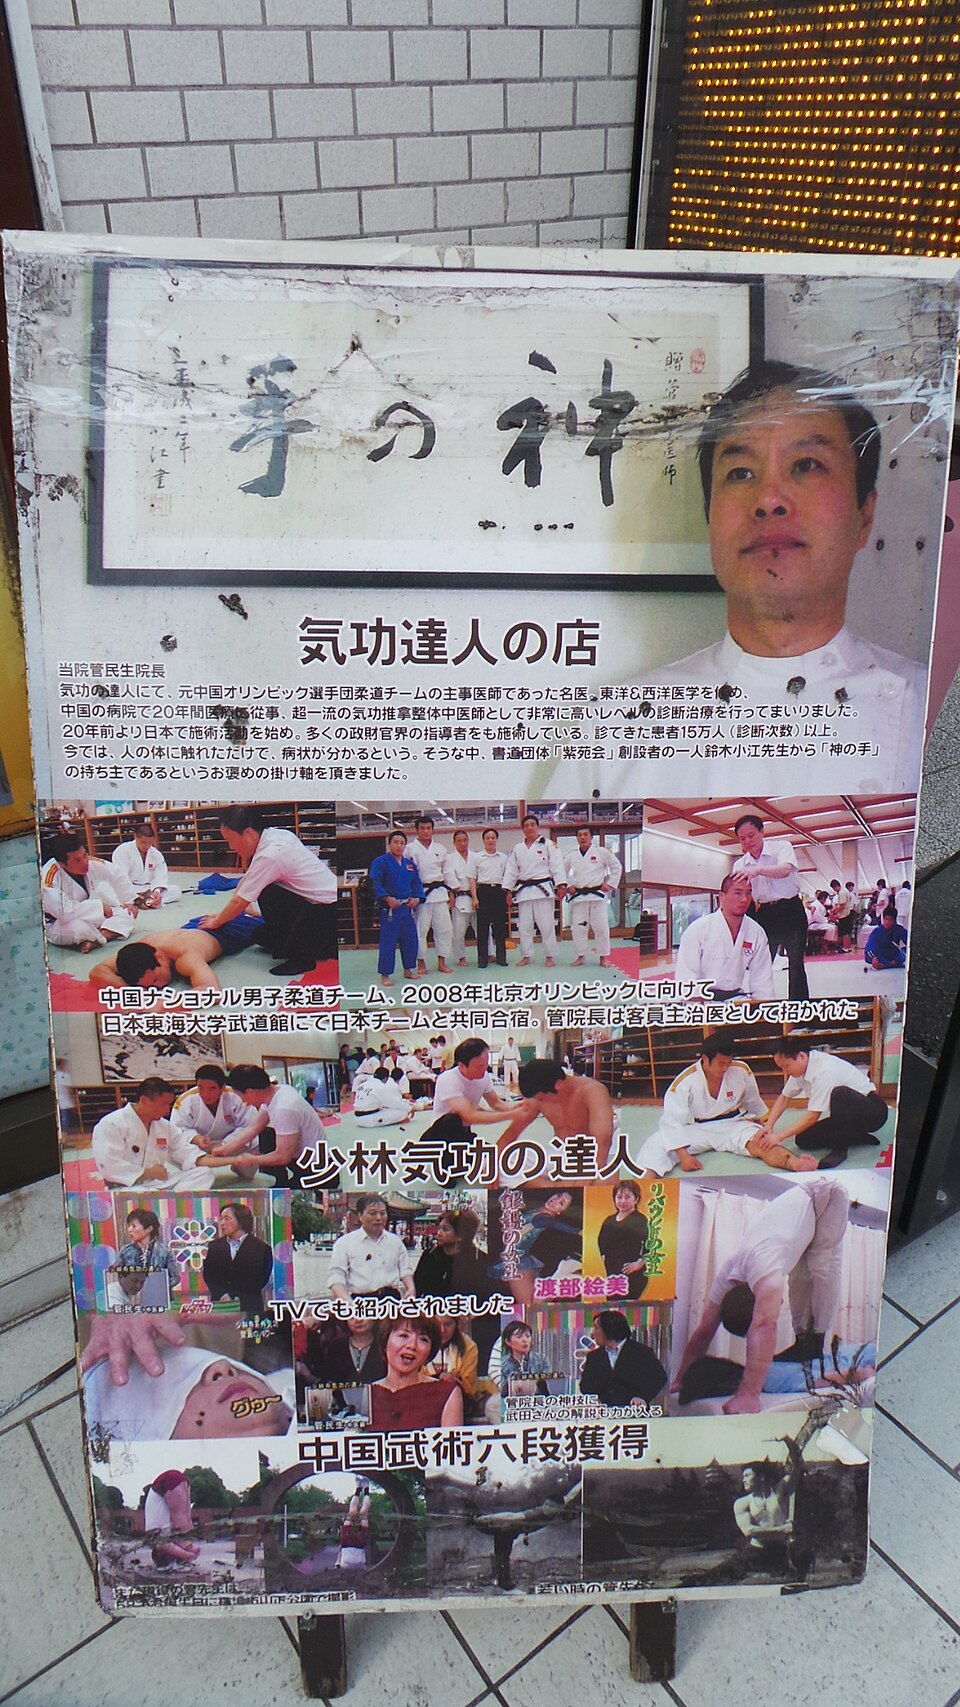 神の手
気功達人の店
当院管民生院長
気功の達人にて、元中国オリンピック選手団柔道チームの主事医師であった名医。東洋&西洋医学を修め、
中国の病院で20年間医療に従事、超一流の気功推拿整体中医師として非常に高いレベルの診断治療を行ってまいりました。
20年前より日本で施術活動を始め。多くの政財官界の指導者をも施術している。診てきた患者15万人（診断次数）以上。
今では、人の体に触れただけで、病状が分かるという。そうな中、書道団体「紫苑会」創設者の一人鈴木小江先生から「神の手」
の持ち主であるというお褒めの掛け軸を頂きました。
中国ナショナル男子柔道チーム、2008年北京オリンピックに向けて
日本東海大学武道館にて日本チームと共同合宿。管院長は客員主治医として招かれた
少林気功の達人
銀盤の女王
リバウンドの女王
渡部絵美
管・民生
TVでも紹介されました
グゥ〜
管・民生
管院長の神技に
武田さんの解説も力が入る
中国武術六段獲得